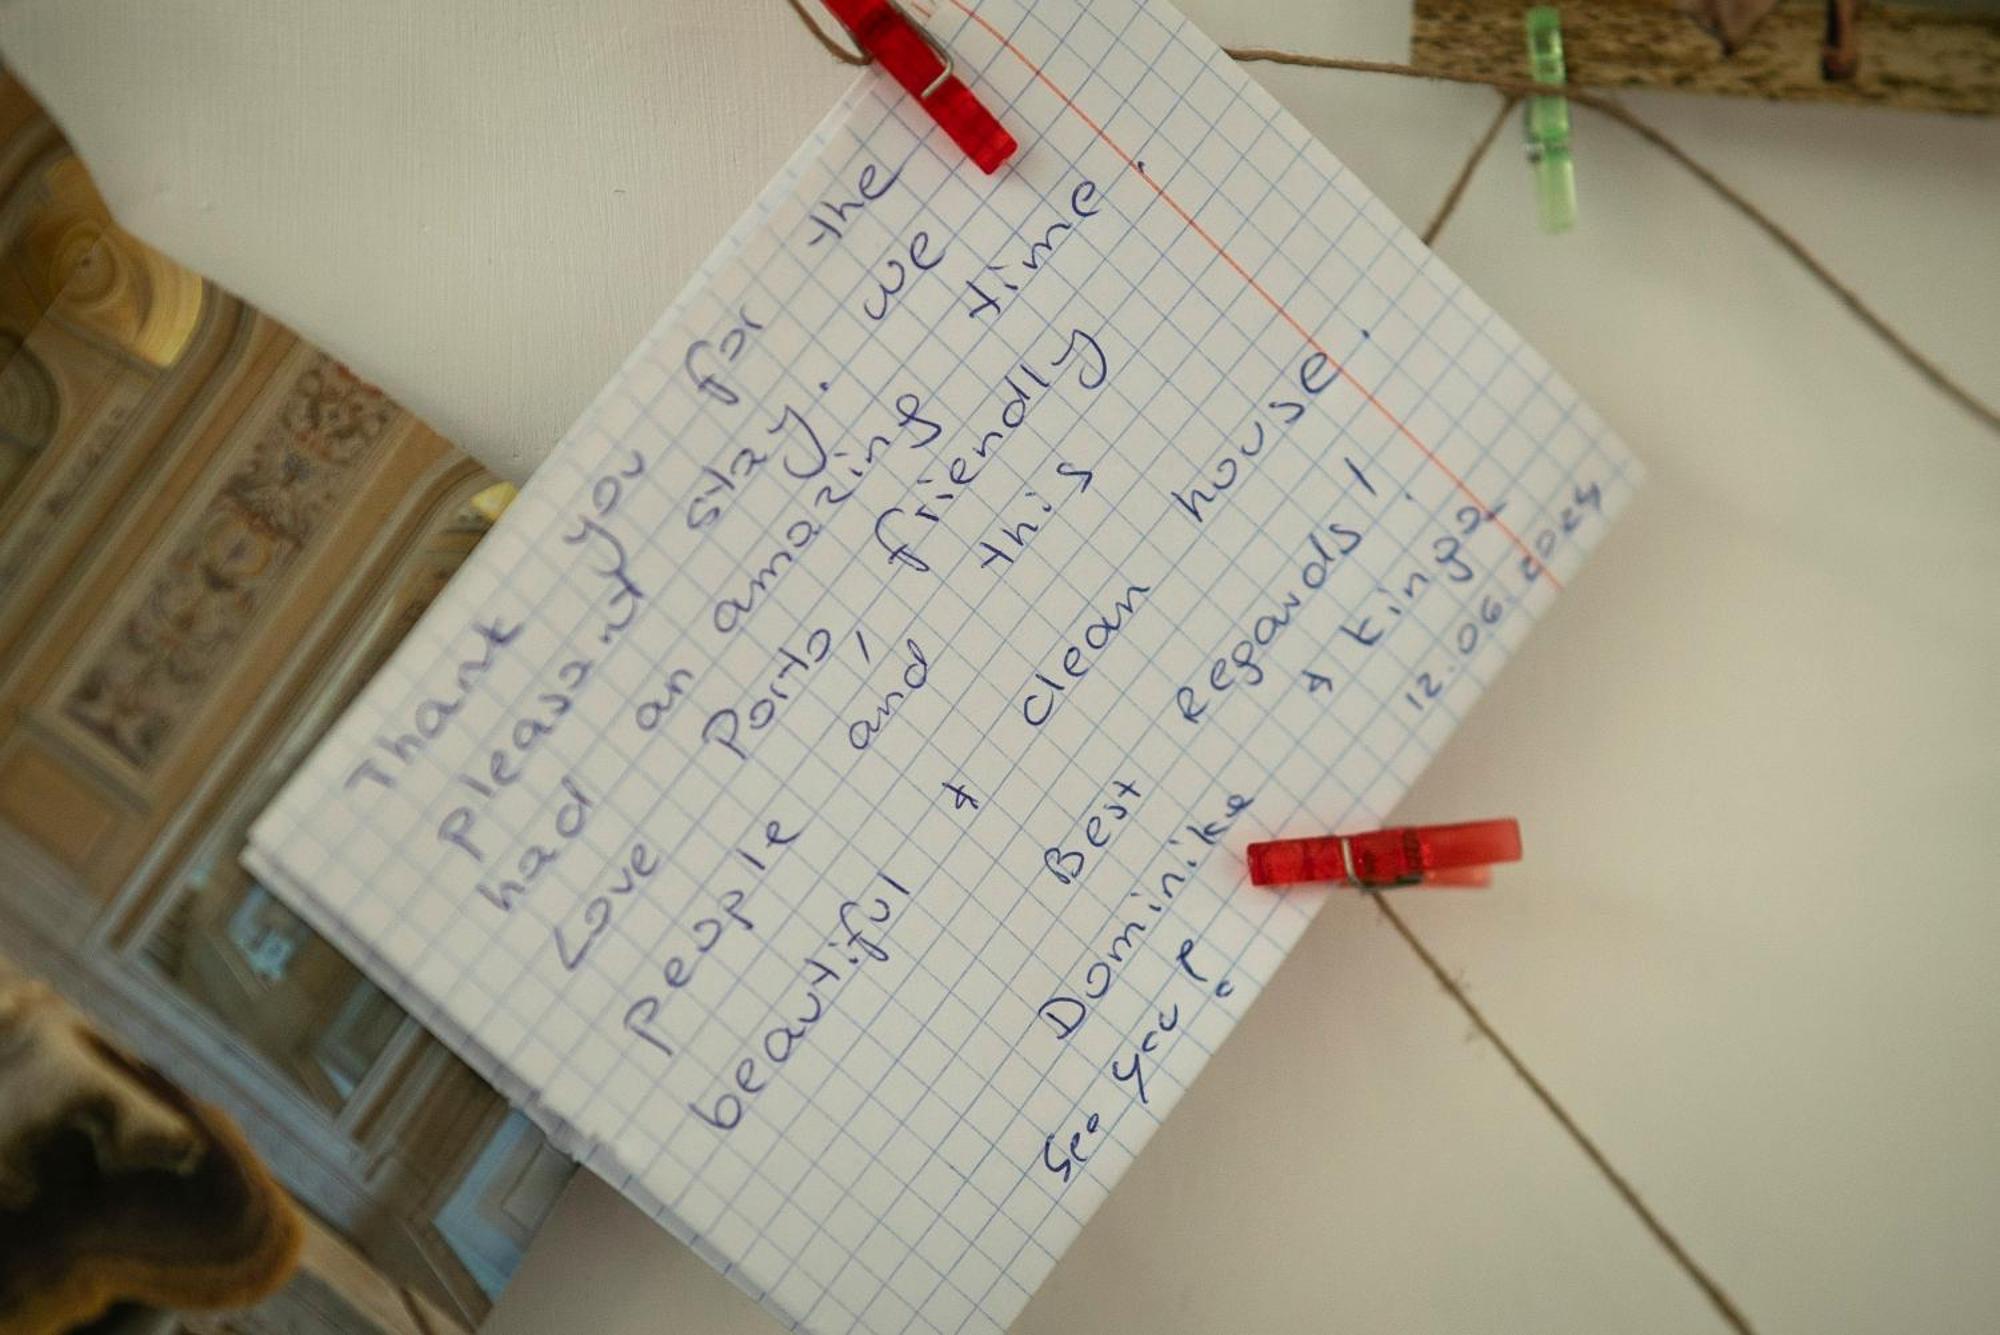 Thank you for the
pleasant stay. We
had an amazing time.
Love Porto, friendly
people and this
beautiful + clean house.
Best Regards!
Dominika + Kinga
See you! 12.06.2024